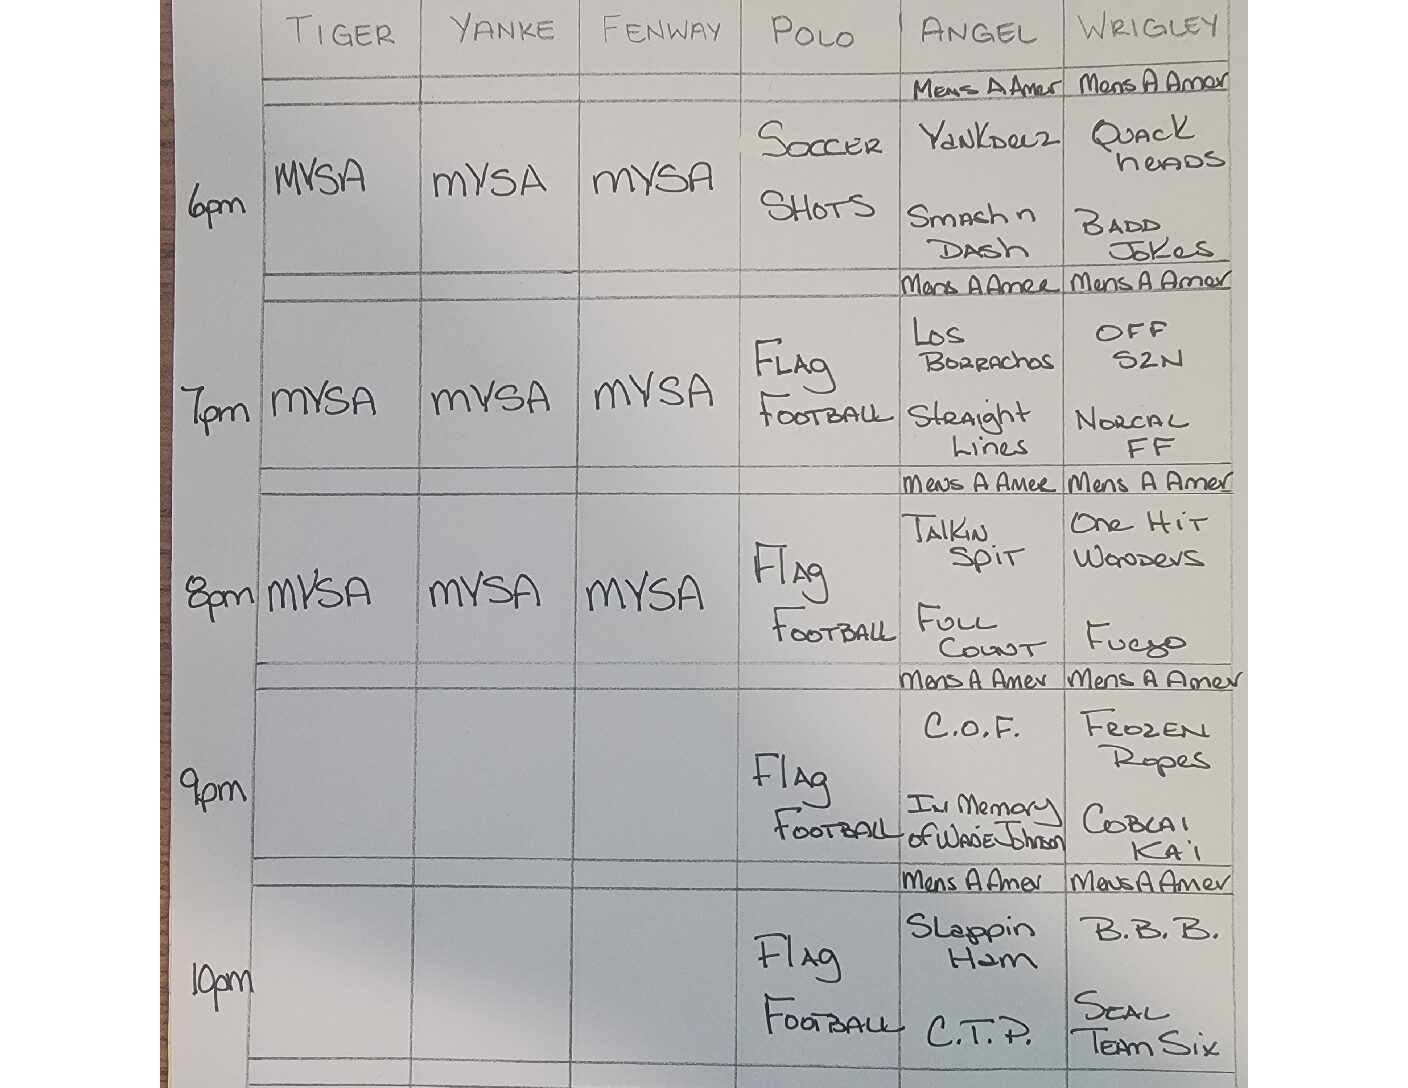 TIGER YANKE FENWAY POLO ANGEL WRIGLEY
Mens A Amer Mens A Amer
6pm MYSA MYSA MYSA SOCCER SHOTS YANKDEEZ SMASH n DASH QUACK HEADS BADD JOKES
Mens A Amer Mens A Amer
7pm MYSA MYSA MYSA FLAG FOOTBALL LOS BORRACHOS STRAIGHT LINES OFF SZN NORCAL FF
Mens A Amer Mens A Amer
8pm MYSA MYSA MYSA FLAG FOOTBALL TALKIN SPIT FULL COUNT ONE HIT WONDERS FUEGO
Mens A Amer Mens A Amer
9pm FLAG FOOTBALL C.O.F. IN MEMORY OF WADE JOHNSON FROZEN ROPES COBLAI KA'I
Mens A Amer Mens A Amer
10pm FLAG FOOTBALL SLAPPIN HAM C.T.P. B.B.B. SEAL TEAM SIX